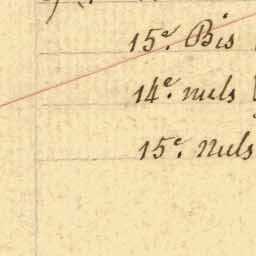 15e. Bis
14e. nuls
15e. nuls